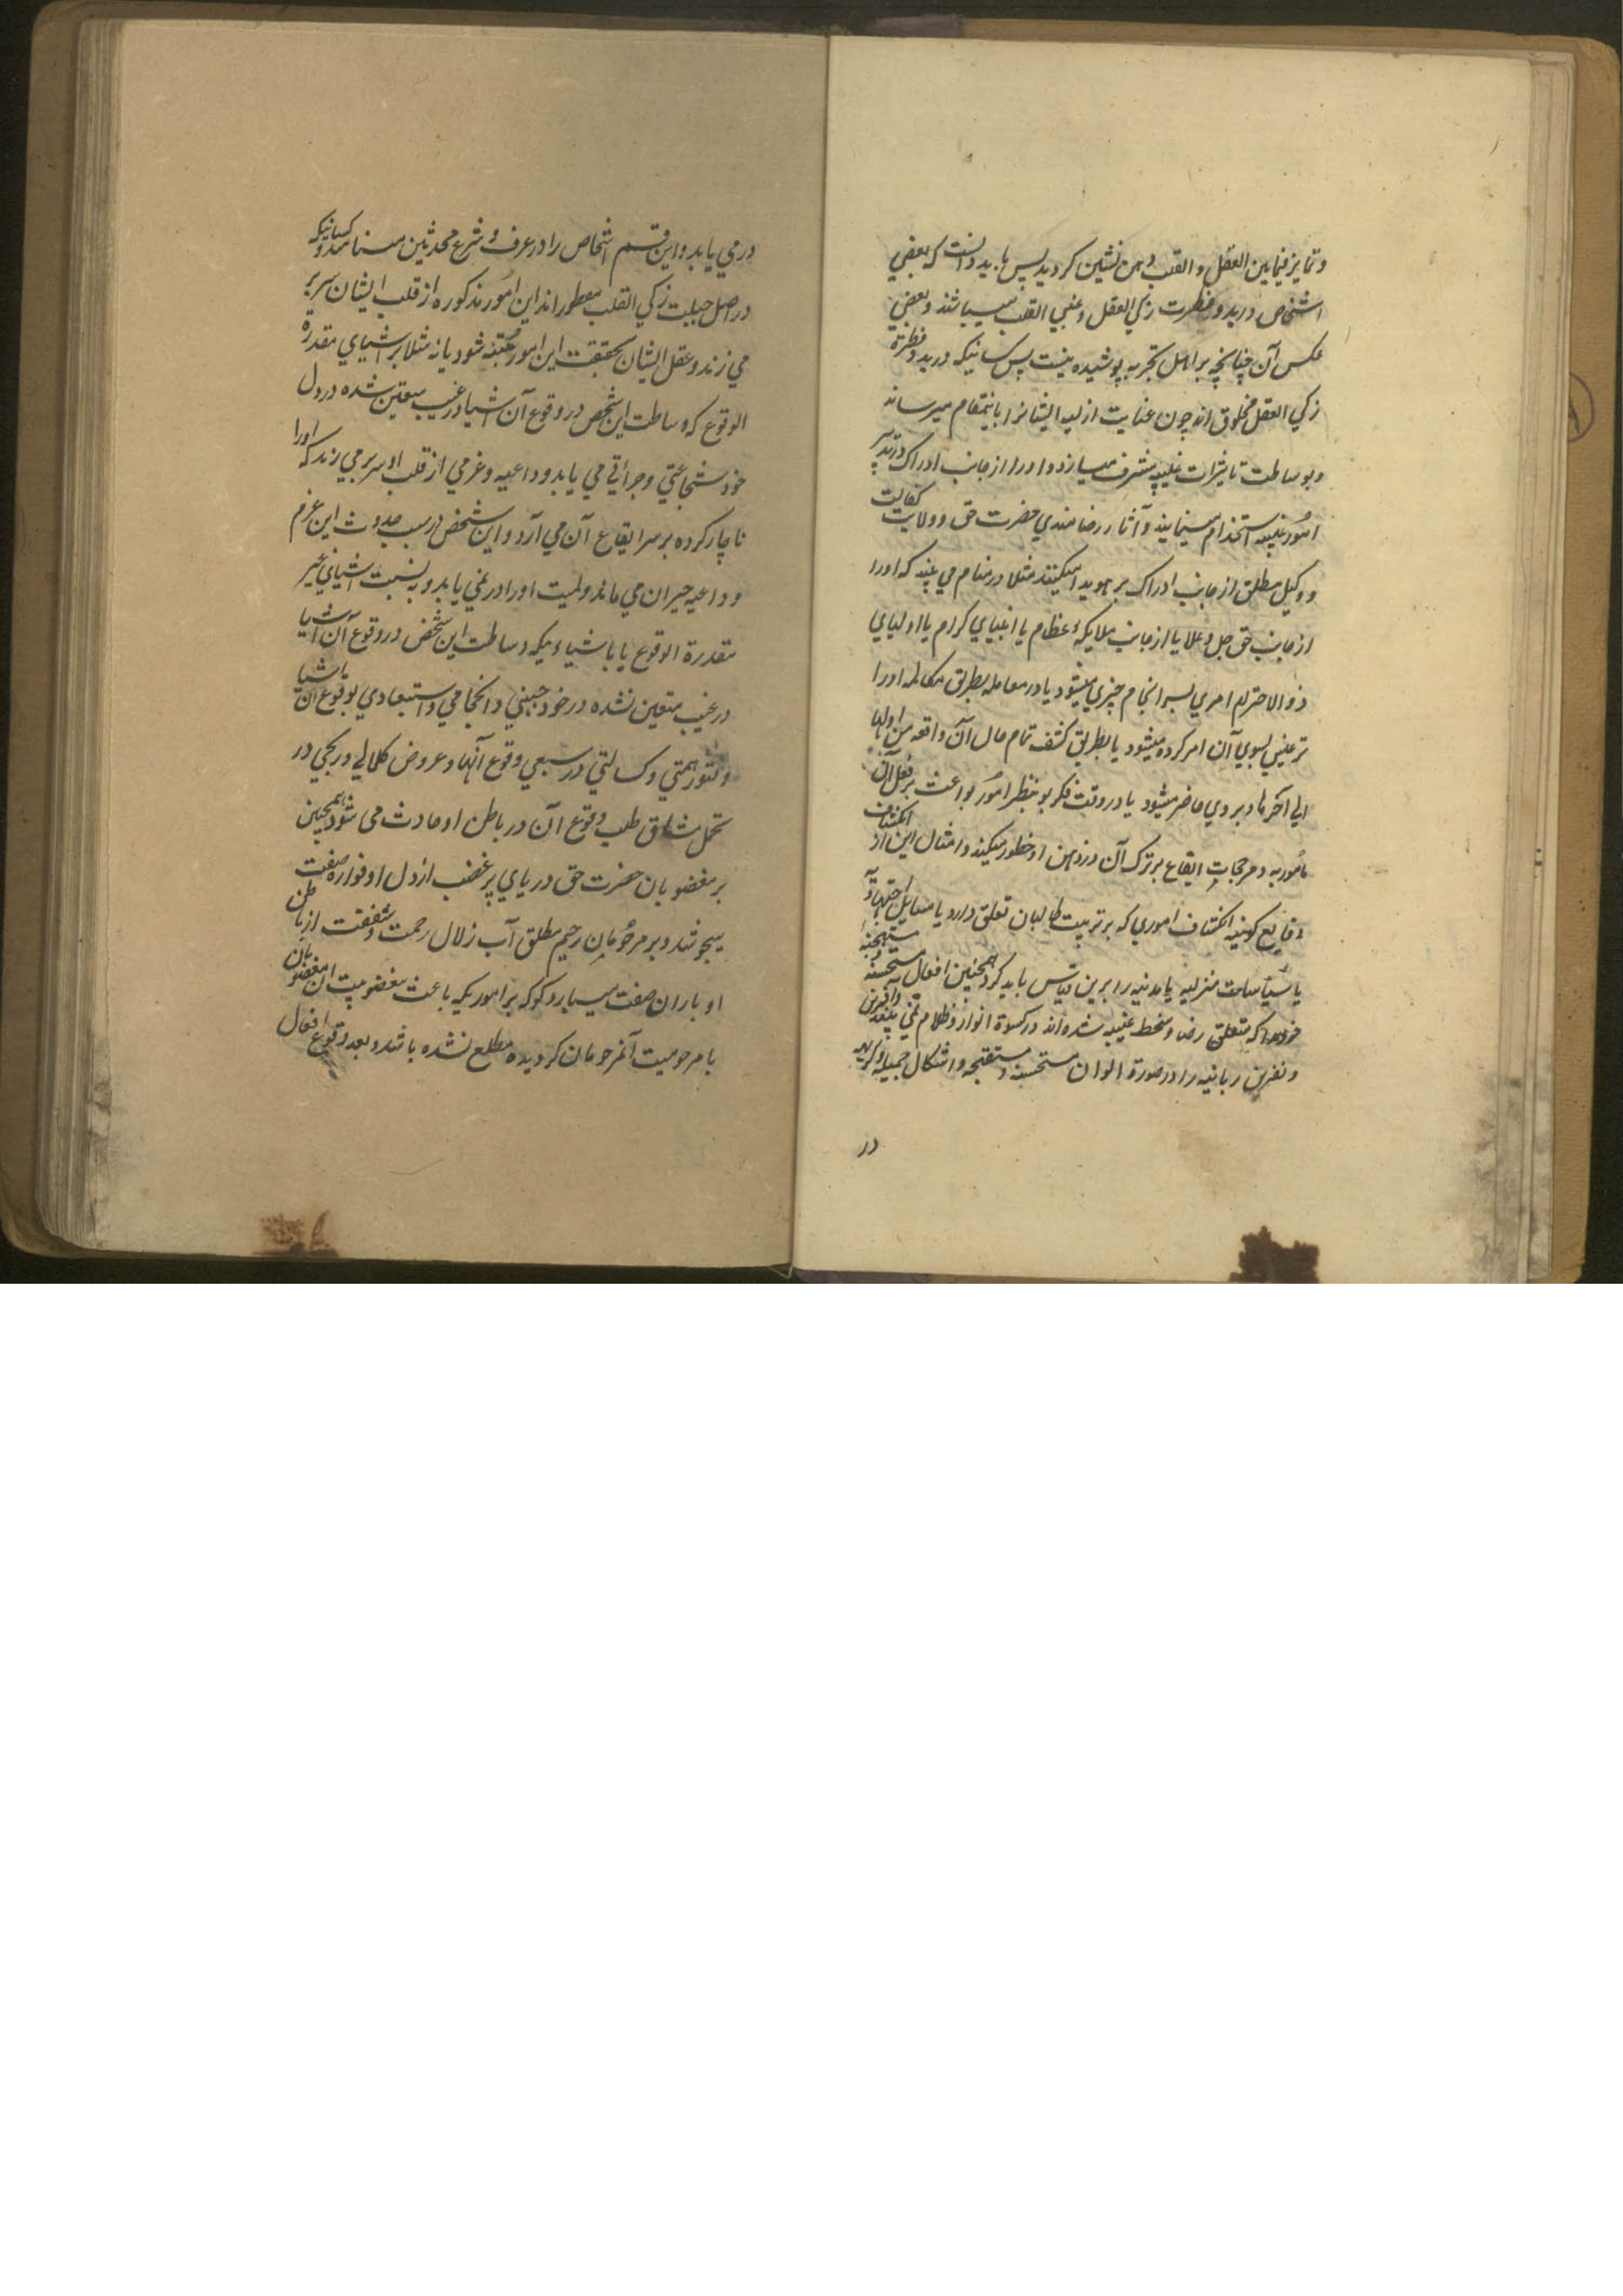 وتمایز فیمابین العقل و القلب ذهن نشین کردید پس باید دانست که بعضي
اشخاص در بدو فطرت زکي العقل و غبي القلب میباشند و بعضي
عکس آن چنانچه بر اهل تجربه پوشیده نیست پس کسانیکه در بدو فطرة
زکي العقل مخلوق اند چون عنایت ازلیه ایشانرا باینمقام میرساند
وبوساطت تاثیرات غیبیه مشرف میسازد و اورا از جانب ادراک در تدبیر
امور غیبیه استخدام مینمایند و آثار رضامندي حضرت حق و ولایت کفالت
و وکیل مطلق از جانب ادراک بر هویدا میکنند مثلا در منام مي بیند که اورا
از جانب حق جل وعلا یا از جانب ملایکۀ عظام یا انبیاي کرام یا اولیاي
ذو الاحترام امري بسر انجام چیزي میشود یا در معامله بطریق مکالمه اورا
ترغیبي بسوي آن امر کرده میشود یا بطریق کشف تمام حال آن واقعه من اولها
الي آخرها و بروي حاضر میشود یا در وقت فکر و نظر امور بواعث بر فعل آن
مامور به و مرجحات ایقاع بر ترک آن در ذهن او خطور میکند و امثال این از انکشاف
وقایع کونیه انکشاف اموري که بر تربیت طالبان تعلق دارد یا مسایل اجتهادیه
یا سیاسات منزلیه یا مدنیه را برین قیاس باید کرد همچنین افعال مستحسنه مستهجنۀ
خود را که متعلق رضا و سخط غیبیه شده اند در کسوة انوار و ظلام مي بیند و آفرین
و نفرین ربانیه را در صورة الوان مستحسنه و مستقبحه و اشکال جمیله و کریهه
در
در مي یابد و این قسم اشخاص را در عرف شرع محدثین مینامند و کسانیکه
در اصل جبلت زکي القلب مفطور اند این امور مذکوره از قلب ایشان سر بر
مي زند و عقل ایشان بحقیقت این امور متنبه شود یا نه مثلا بر اشیاي مقدرة
الوقوع که وساطت این شخص در وقوع آن اشیا در غیب متعین شده در دل
خود شجاعتي و جرأتي مي یابد و داعیه و عزمي از قلب او سر بر مي زند که اورا
ناچار کرده بر سر ایقاع آن مي آرد و این شخص در سبب حدوث این عزم
و داعیه حیران مي ماند و لمیت اورا در نمي یابد و به نسبت اشیاي غیر
مقدرة الوقوع یا باشیاء یکه وساطت این شخص در وقوع آن اشیا
در غیب متعین نشده در خود جبني و انجامي و استبعادي بوقوع آن باشیا
و فتور همتي و کسالتي در سعي وقوع آنها و عروض کلالي و رنجي در
تحمل مشاق طلب وقوع آن در باطن او حادث مي شود همچنین
بر مغضوبان حضرت حق دریاي پر غضب از دل او فواره صفت
میجوشد و بر مرحومان رحیم مطلق آب زلال رحمت و شفقت از باطن
او باران صفت میبارد گو که بر اموریکه باعث مغضوبیت آن مغضوبان
یا مرحومیت آنمرحومان کردیده مطلع نشده باشد و بعد وقوع افعال